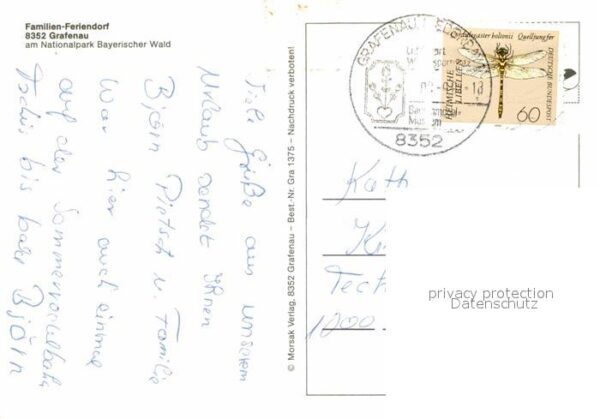 Familien-Feriendorf
8352 Grafenau
am Nationalpark Bayerischer Wald
Viele Grüße aus unserem
Urlaub sendet Ihnen
Björn Pietsch u. Familie
War hier auch einmal
auf der Sommerrodelbahn
Tschüs bis bald Björn
© Morsak Verlag, 8352 Grafenau – Best.-Nr. Gra 1375 – Nachdruck verboten!
GRAFENAU
8352
Cordulegaster boltonii Quelljungfer
HEIMISCHE LIBELLEN
DEUTSCHE BUNDESPOST
60
Kath
K
Tech
1000
privacy protection
Datenschutz